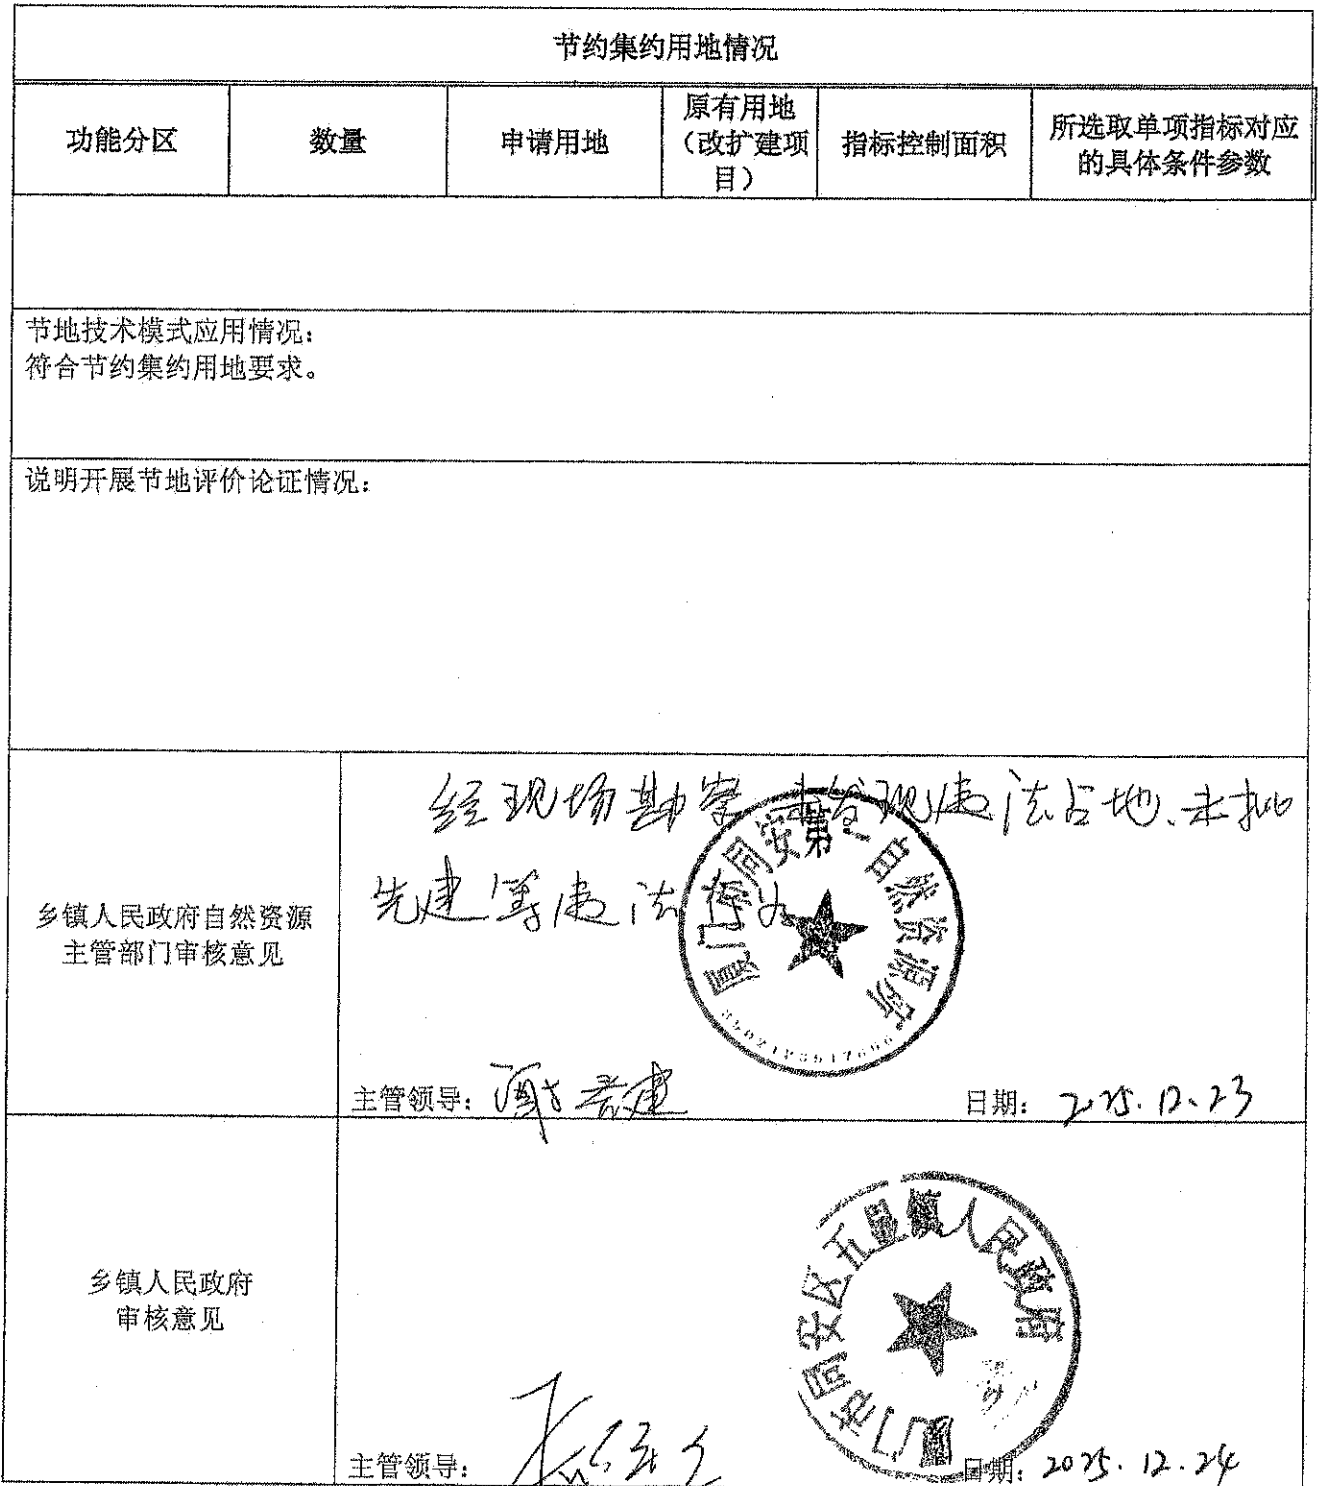 节约集约用地情况
功能分区
数量
申请用地
原有用地
（改扩建项
目）
指标控制面积
所选取单项指标对应
的具体条件参数
节地技术模式应用情况：
符合节约集约用地要求。
说明开展节地评价论证情况：
乡镇人民政府自然资源
主管部门审核意见
经现场勘察 未发现违法占地、未批
先建等违法行为
厦门市同安第一自然资源所
主管领导：
日期：2025.12.23
乡镇人民政府
审核意见
厦门市同安区五显镇人民政府
主管领导：
日期：2025.12.24